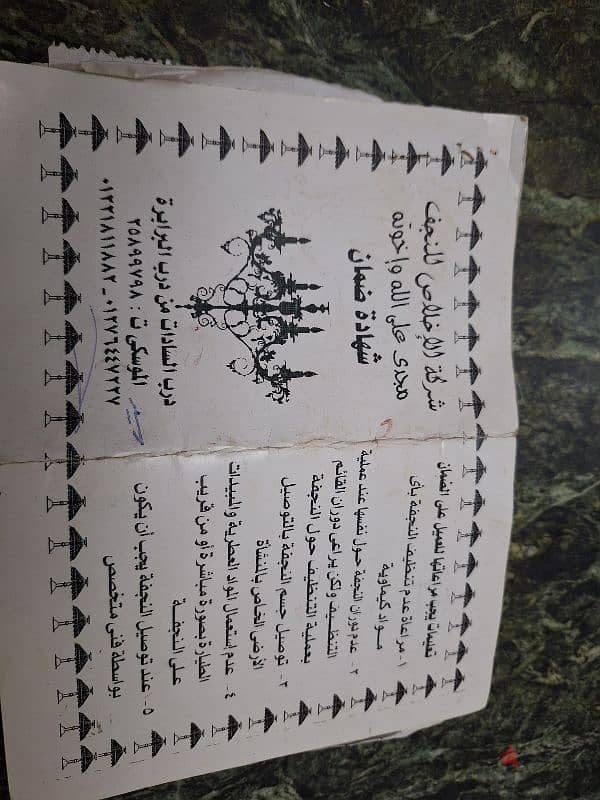 شركة الإخلاص للنجف
مجدى على الله وإخوته
شهادة ضمان
درب السادات من درب البرابرة
الموسكى ت : ٢٥٨٩٩٧٩٨
٠١٢٢١٨١١٨٨٢ - ٠١٢٧٦٤٤٧٢٢٧
تعليمات يجب مراعاتها للعميل على الضمان
١- مراعاة عدم تنظيف النجفة بأى
مواد كيماوية
٢- عدم دوران النجفة حول نفسها عند عملية
التنظيف ولكن يراعى دوران القائم
بعملية التنظيف حول النجفة
٣- توصيل جسم النجفة بالتوصيل
الأرضى الخاص بالمنشأة
٤- عدم إستعمال المواد العطرية والبيدات
الطيارة بصورة مباشرة أو من قريب
على النجفة
٥- عند توصيل النجفة يجب أن يكون
بواسطة فنى متخصص